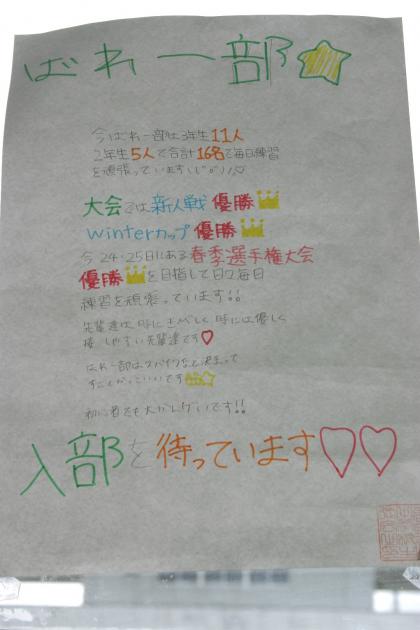 ばれー部
今ばれー部は3年生11人
2年生5人で合計16名で毎日練習
を頑張っています
大会では新人戦優勝
winterカップ優勝
今24・25日にある春季選手権大会
優勝を目指して日々毎日
練習を頑張っています!!
先輩達は時にきびしく時には優しく
接しやすい先輩達です♡
ばれー部はスパイクなど決まって
すごくかっこいいです
初心者でも大かんげいです!!
入部を待っています♡♡